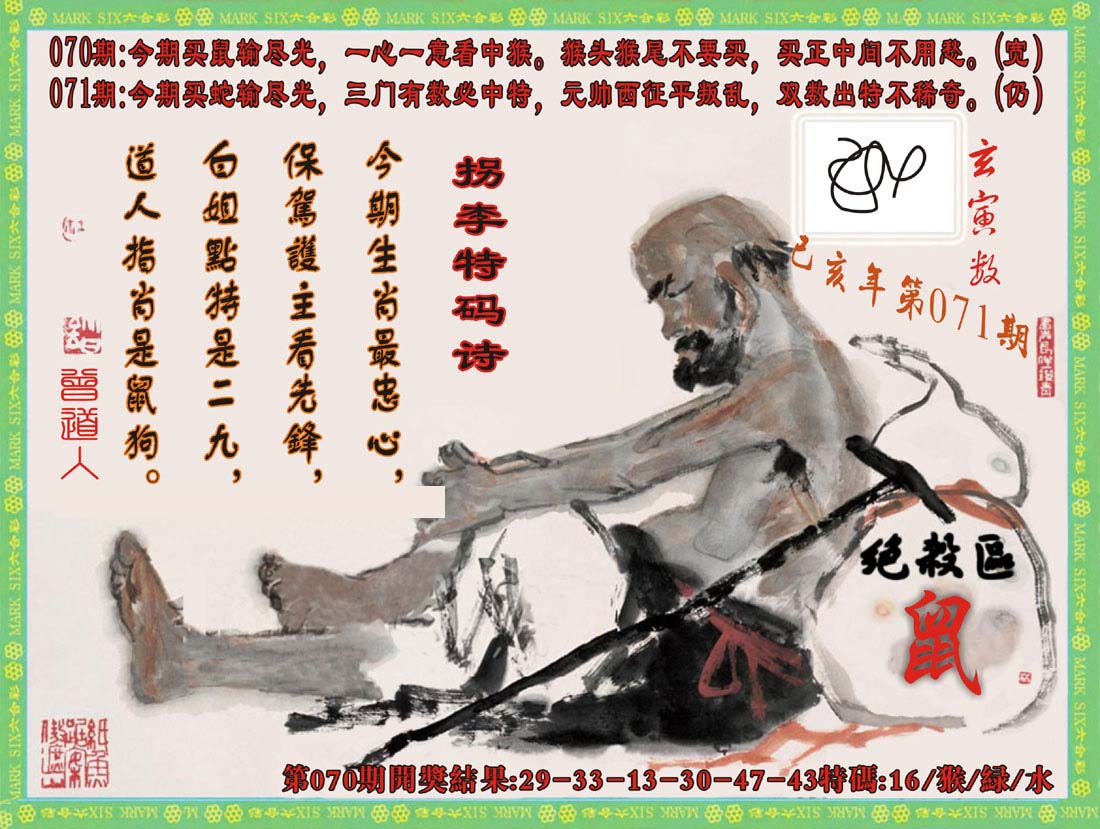 MARK SIX六合彩
070期:今期买鼠输尽光，一心一意看中猴。猴头猴尾不要买，买正中间不用愁。(宽)
071期:今期买蛇输尽光，三门有数必中特，元帅西征平叛乱，双数出特不稀奇。(仍)
玄寅数
己亥年第071期
拐李特码诗
今期生肖最忠心，
保駕護主看先鋒，
白姐點特是二九，
道人指肖是鼠狗。
曾道人
绝殺區
鼠
第070期開獎結果:29-33-13-30-47-43特碼:16/猴/緑/水